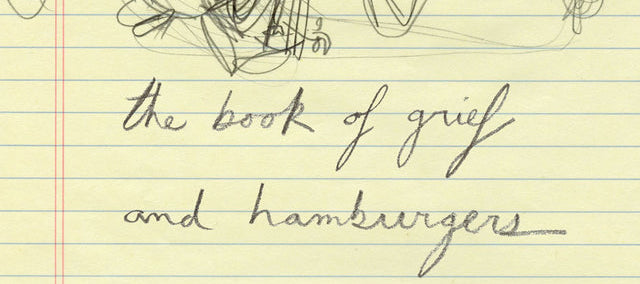 the book of grief
and hamburgers